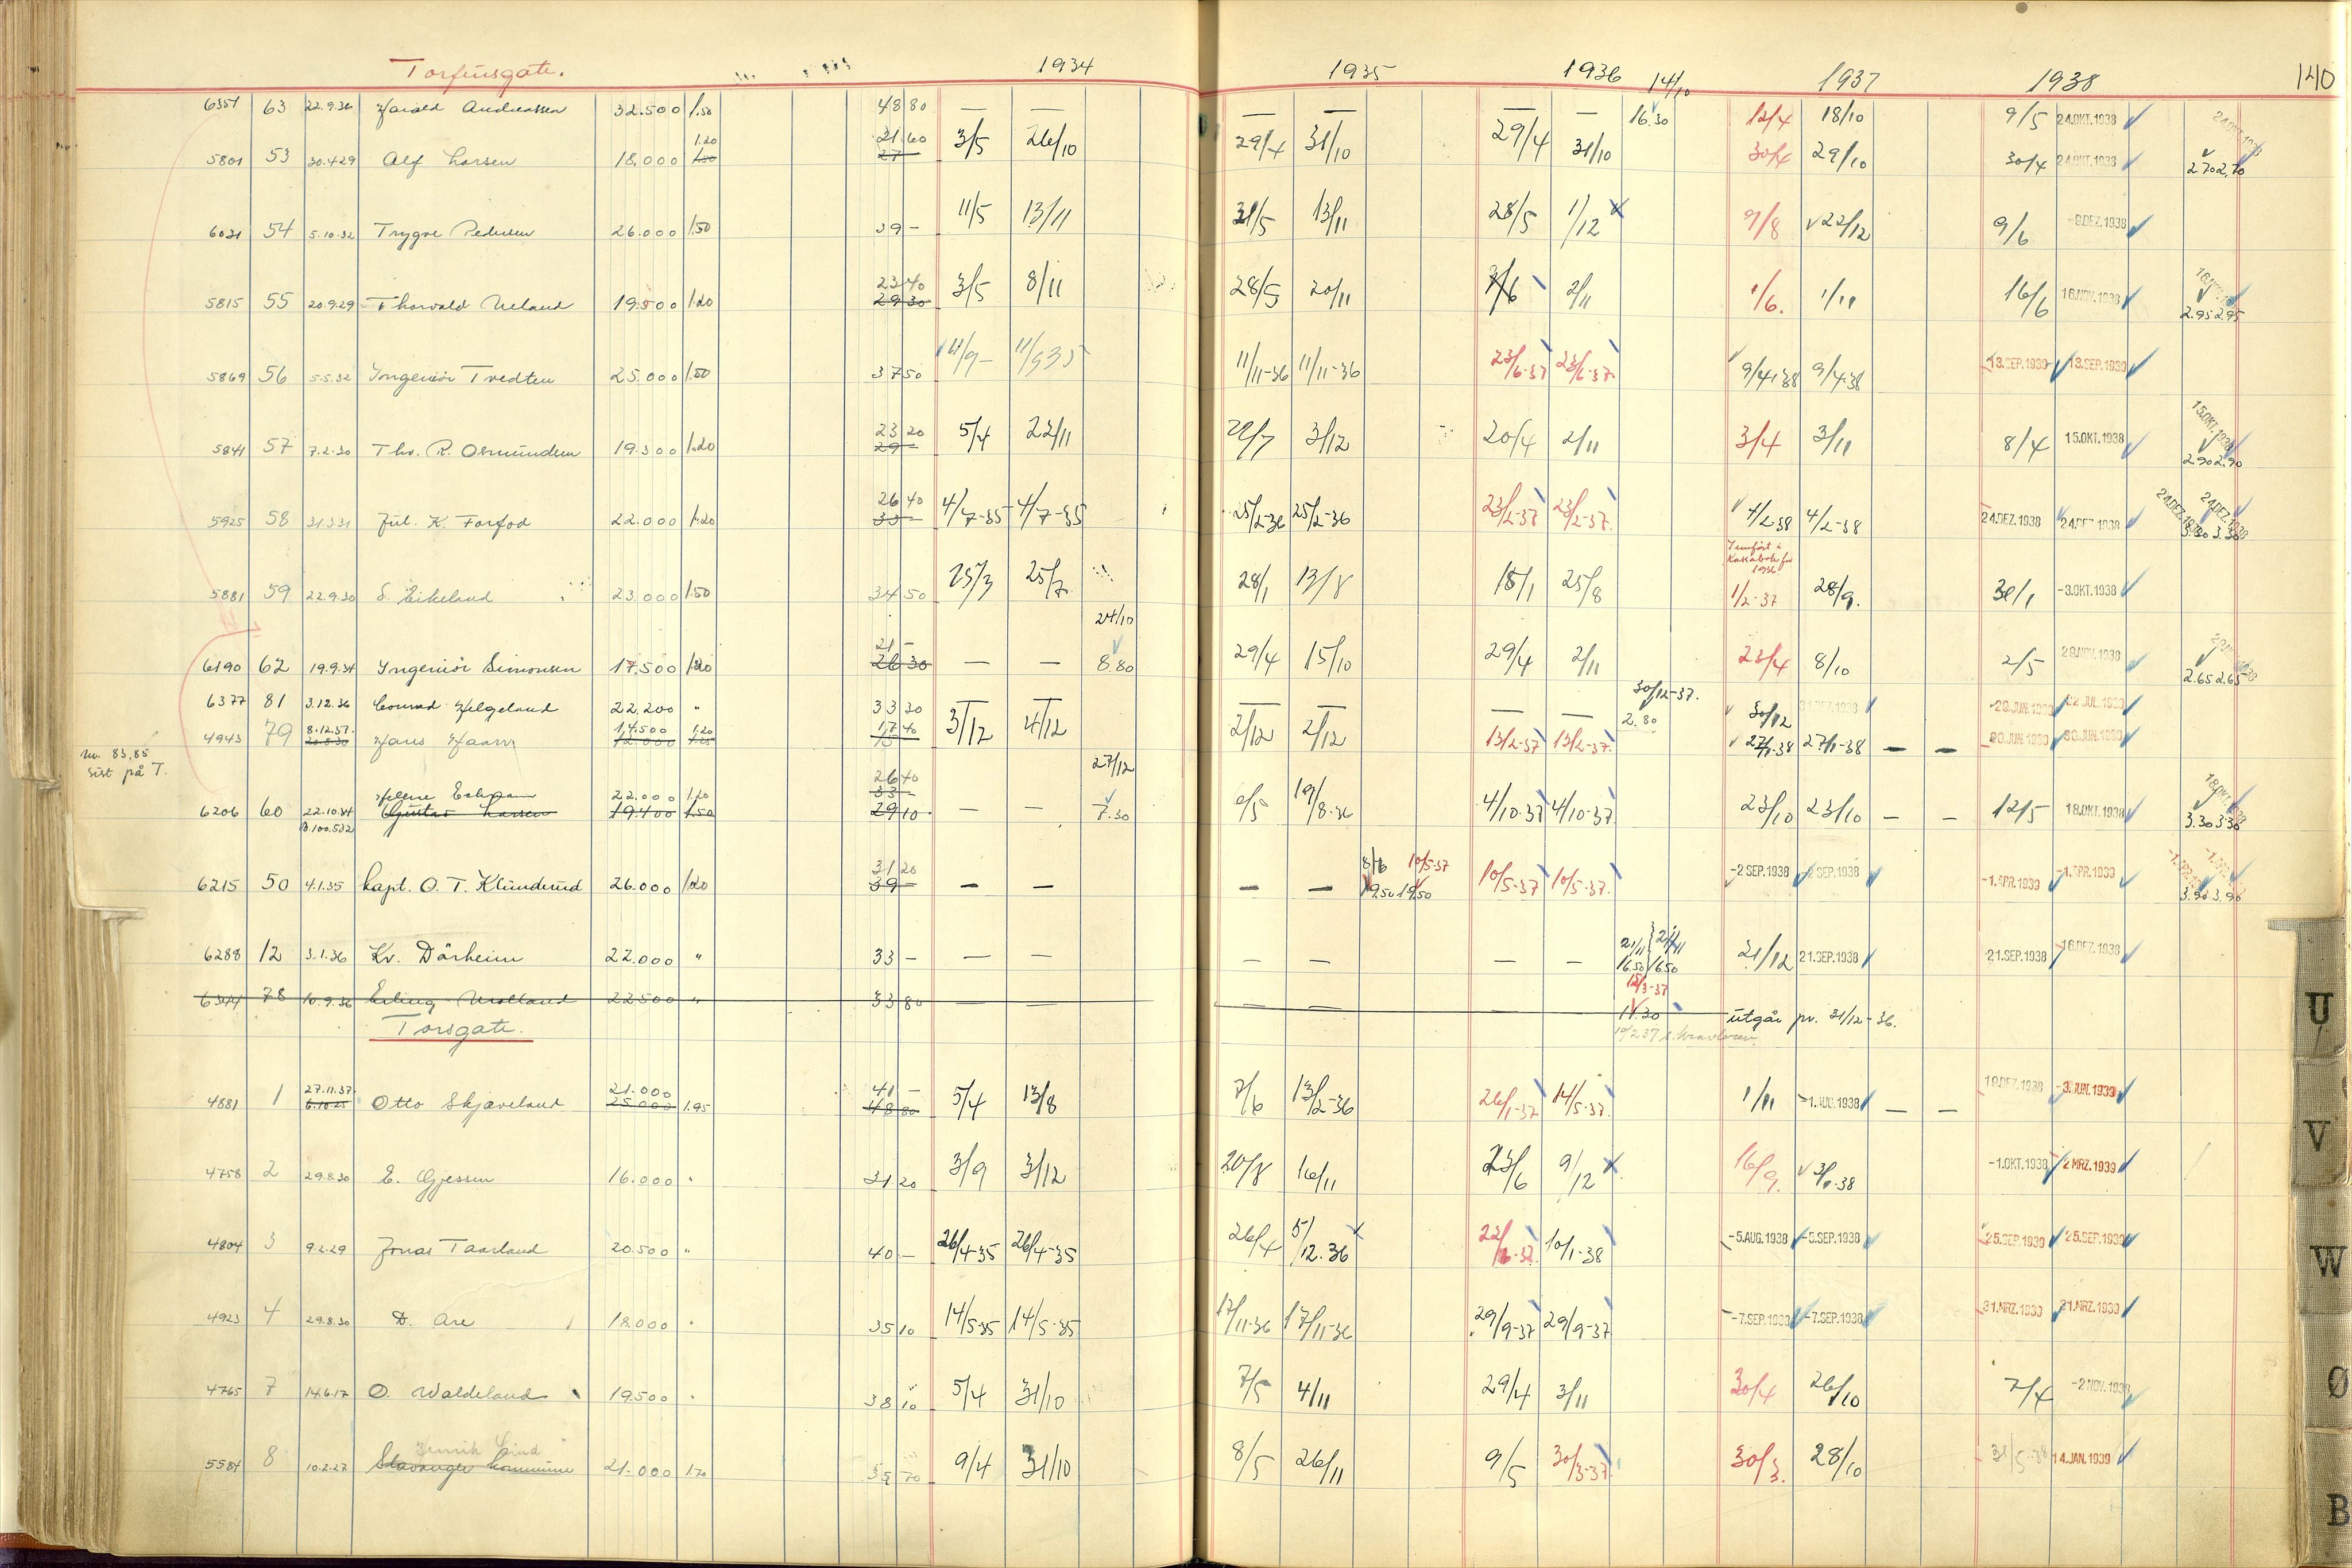 Torfinsgate. 1934 1935 1936 1937 1938 140
14/10
6351 63 22.9.36 Harald Andreassen 32.500 1.50 48 80 — — — — — — 16.30 12/4 18/10 9/5 24.OKT.1938
1.20 21.60 24.OKT.1938
5801 53 30.4.29 Alf Larsen 18.000 1.50 27 3/5 26/10 29/4 31/10 29/4 31/10 30/4 29/10 30/4 24.OKT.1938 2.70 2.70
6021 54 5.10.32 Trygve Pedersen 26.000 1.50 39 — 11/5 13/11 31/5 13/11 28/5 1/12 9/8 22/12 9/6 -9.DEZ.1938
23 40
5815 55 20.9.29 Thorvald Ueland 19.500 1.20 29 30 3/5 8/11 28/5 20/11 2/11 1/6. 1/11 16/6 16.NOV.1938 2.95 2.95
5869 56 5.5.32 Ingeniör Tvedten 25.000 1.50 37 50 11/9 — 11/9 35 11/11-36 11/11-36 23/6-37 23/6-37 9/4-38 9/4-38 13.SEP.1939 13.SEP.1939
23 20 15.OKT.1938
5841 57 7.2.30 Thv. R. Osmundsen 19.300 1.20 29 — 5/4 22/11 3/12 20/4 2/11 3/4 3/11 8/4 15.OKT.1938 2.90 2.90
26 40 24.DEZ.1938 24.DEZ.1938
5925 58 31.3.31 Jul. K. Forfod 22.000 1.20 33 — 4/7-35 4/7-35 25/2-36 25/2-36 23/2-37 23/2-37. 4/2-38 4/2-38 24.DEZ.1938 24.DEZ.1938 3.30 3.30
Innført i
Kassabok for
1936
5881 59 22.9.30 S. Eikeland 23.000 1.50 34 50 25/3 25/7 28/1 13/8 18/1 25/8 1/2-37 28/9. 31/1 -3.OKT.1938
24/10
21 —
6190 62 19.9.34 Ingeniör Simonsen 17.500 1.20 26 30 — — 8.80 29/4 15/10 29/4 2/11 23/4 8/10 2/5 2.65 2.65
30/12-37.
6377 81 3.12.36 Conrad Helgeland 22.200 " 33 30 — — — — — — 2.80 30/12
8.12.37. 14.500 1.20 17 40
4943 79 20.8.30 Hans Haarr 12.000 1.25 15 — 3/12 4/12 2/12 2/12 13/2-37 13/2-37. 27/1-38 27/1-38 — — 30.JUN.1939 30.JUN.1939
nr. 83,85
sist på T.
27/12
Helene 22.000 1.20 26 40
33 —
6206 60 22.10.34 Gustav Larsen 19.400 1.50 29 10 — — 7.30 6/5 19/8-36 4/10-37 4/10-37 23/10 23/10 — — 12/5 18.OKT.1938 3.30 3.30
8/6 10/5-37
31 20
6215 50 4.1.35 Kapt. O. T. Klunderud 26.000 1.20 39 — — — — — 19.50 19.50 10/5-37 10/5-37. -2 SEP.1938 -2 SEP.1938 -1.APR.1939 -1.APR.1939 3.90 3.90
21/11 21/11
6288 12 3.1.36 Kv. Dårheim 22.000 " 33 — — — — — — — 16.50 16.50 21/12 21.SEP.1938 21.SEP.1938 16.DEZ.1938
12/3-37
6344 78 10.9.36 Erling 22500 " 33 80 — — — — 11.30 utgår pr. 31/12-36.
Torsgate.
27.11.37. 21.000 41 —
4881 1 6.10.25 Otto Skjæveland 25.000 1.95 48 80 5/4 13/8 7/6 13/2-36 26/1-37 14/5-37. 1/11 -1.AUG.1938 — — 19.DEZ.1938
4758 2 29.8.30 E. Gjessen 16.000 " 31 20 3/9 3/12 20/8 16/11 23/6 9/12 16/9. 3/1-38 -1.OKT.1938 2 MRZ.1939
4804 3 9.2.29 Jonas Taarland 20.500 " 40 — 26/4-35 26/4-35 26/4 5/12.36 10/1-38 -5.AUG.1938 -5.SEP.1938 25.SEP.1939 25.SEP.1939
4923 4 29.8.30 D. Are 18.000 " 35 10 14/5-35 14/5-35 17/11-36 17/11-36 29/9-37 29/9-37 -7.SEP.1938 -7.SEP.1938 31.MRZ.1939 31.MRZ.1939
4765 7 14.6.17 O. Waldeland 19.500 " 38 10 5/4 31/10 7/5 4/11 29/4 3/11 30/4 26/10 7/4 -2 NOV.1938
Henrik Lind
5584 8 10.2.27 Stavanger kommune 21.000 1.70 35 70 9/4 31/10 8/5 26/11 9/5 30/3-37. 30/3. 28/10 31/5-38 14.JAN.1939
U
V
W
Ø
B